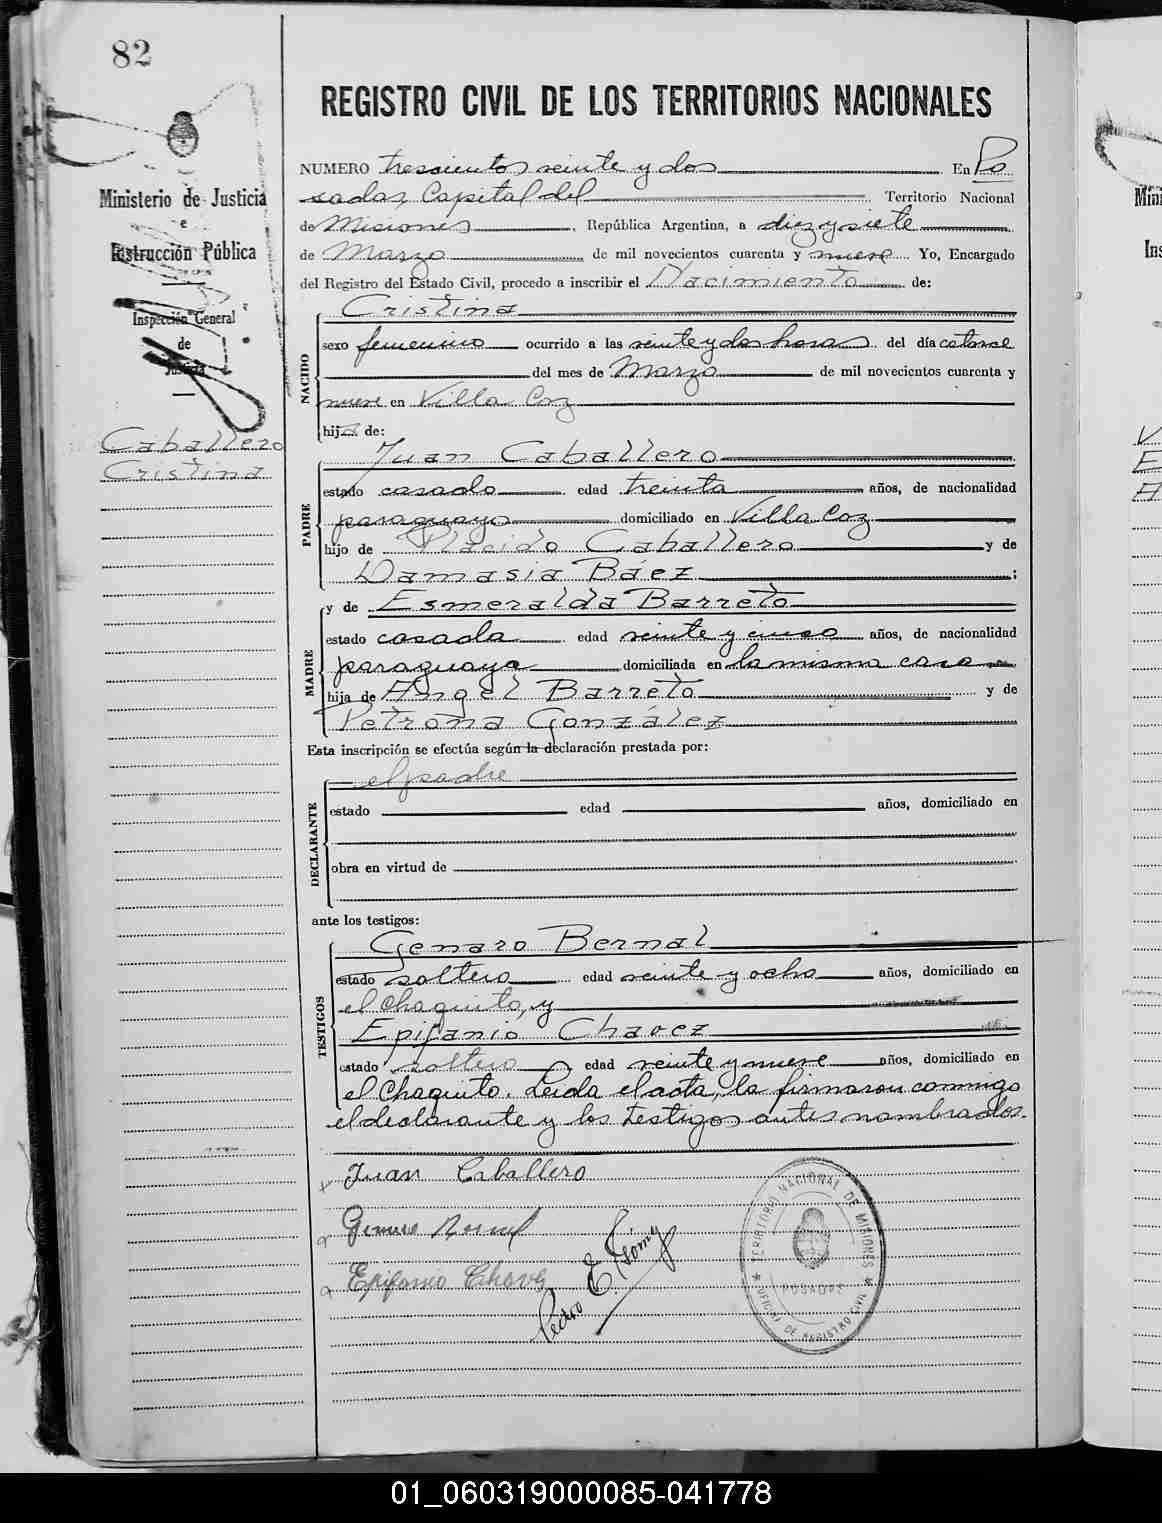 82
REGISTRO CIVIL DE LOS TERRITORIOS NACIONALES
Ministerio de Justicia
e
Instrucción Pública
Inspección General
de
Justicia
Caballero
Cristina
NUMERO trescientos veinte y dos En Po
sadas, Capital del Territorio Nacional
de Misiones, República Argentina, a diez y siete
de Marzo de mil novecientos cuarenta y nueve Yo, Encargado
del Registro del Estado Civil, procedo a inscribir el Nacimiento de:
NACIDO
Cristina
sexo femenino ocurrido a las veinte y dos horas del día catorce
del mes de Marzo de mil novecientos cuarenta y
nueve en Villa Coz
hija de:
PADRE
Juan Caballero
estado casado edad treinta años, de nacionalidad
paraguayo domiciliado en Villa Coz
hijo de Plácido Caballero y de
Damasia Báez ;
MADRE
y de Esmeralda Barreto
estado casada edad veinte y cinco años, de nacionalidad
paraguaya domiciliada en la misma casa
hija de Angel Barreto y de
Petrona González
Esta inscripción se efectúa según la declaración prestada por:
DECLARANTE
el padre
estado edad años, domiciliado en
obra en virtud de
ante los testigos:
TESTIGOS
Genaro Bernal
estado soltero edad veinte y ocho años, domiciliado en
el Chaquito, y
Epifanio Chavez
estado soltero edad veinte y nueve años, domiciliado en
el Chaquito. Leída el acta, la firmaron conmigo
el declarante y los testigos antes nombrados.
Juan Caballero
Genaro Bernal
Epifanio Chavez
Pedro E.
TERRITORIO NACIONAL DE MISIONES
POSADAS
OFICINA DE REGISTRO CIVIL
01_060319000085-041778